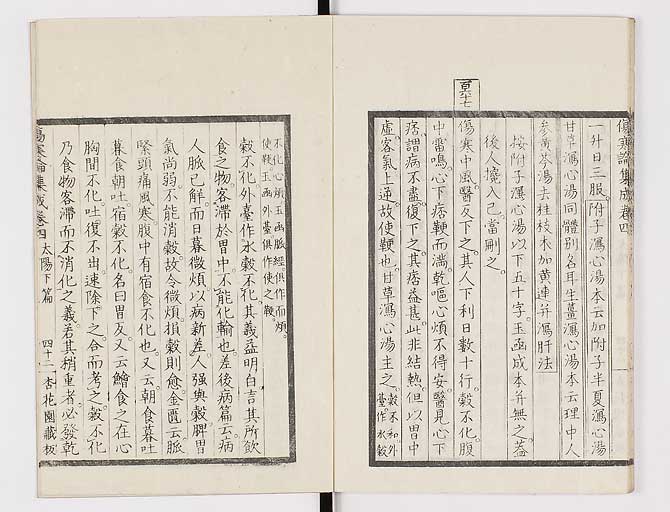 傷寒論集成卷四
一升日三服。附子瀉心湯本云加附子半夏瀉心湯
甘草瀉心湯同體別名耳生薑瀉心湯本云理中人
參黃芩湯去桂枝朮加黃連并瀉肝法
按附子瀉心湯以下五十字。玉函成本并無之。蓋
後人攙入已。當刪之
傷寒中風。醫反下之。其人下利日數十行。穀不化。腹
中雷鳴。心下痞鞕而滿。乾嘔心煩不得安。醫見心下
痞。謂病不盡。復下之。其痞益甚。此非結熱。但以胃中
虛。客氣上逆。故使鞕也。甘草瀉心湯主之。穀不和外
臺作水穀
不化心煩玉函脈經俱作而煩。
使鞕玉函外臺俱作使之鞕
穀不化外臺作水穀不化。其義益明白。言其所飲
食之物。客滯於胃中。不能化輸也。差後病篇云。病
人脈已解。而日暮微煩。以病新差。人强與穀。脾胃
氣尚弱。不能消穀。故令微煩。損穀則愈。金匱云。脈
緊頭痛風寒。腹中有宿食不化也。又云。朝食暮吐
暮食朝吐。宿穀不化。名曰胃反。又云。鱠食之在心
胸間不化。吐復不出。速除下之。合而考之。穀不化
乃食物客滯而不消化之義。若其稍重者。必發乾
傷寒論集成卷四 太陽下篇 四十二 杏花園藏板